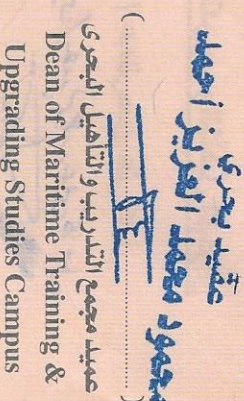 عقيد بحري
محمود العزيز أحمد
(..............................)
عميد مجمع التدريب والتاهيل البحرى
Dean of Maritime Training &
Upgrading Studies Campus